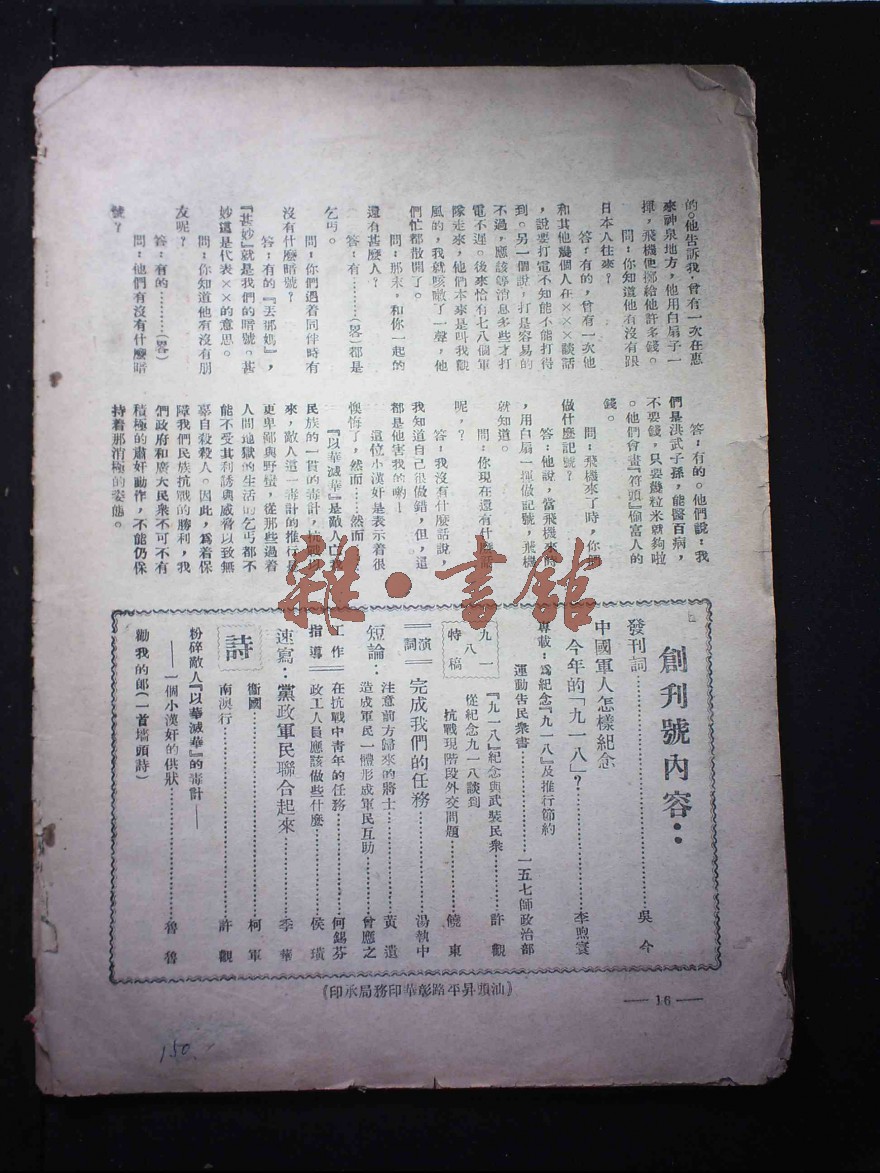 的。他告訴我,曾有一次在惠
來神泉地方,他用白扇子一
揮,飛機他擲給他許多錢。
問:你知道他有沒有跟
日本人往來?
答:有的,曾有一次他
和其他幾個人在×××談話
,說要打電不知能不能打得
到。另一個說,打是容易的
不過,應該等消息多些才打
電不遲。後來恰有七八個軍
隊走來,他們本來是叫我觀
風的,我就咳嗽了一聲,他
們忙都散開了。
問:那末,和你一起的
還有甚麼人?
答:有………(畧)都是
乞丐。
問:你們遇着同伴時有
沒有什麼暗號?
答:有的『丟那媽』,
『甚妙』就是我們的暗號。甚
妙這是代表××的意思。
問:你知道他有沒有朋
友呢?
答:有的………(畧)
問:他們有沒有什麼暗
號?
答:有的。他們說:我
們是洪武子孫,能醫百病,
不要錢,只要幾粒米就夠啦
。他們會畫『符頭』偷富人的
錢。
問:飛機來了時,你們
做什麼記號?
答:他說,當飛機來時
,用白扇一揮做記號,飛機
就知道。
問:你現在還有什麼話
呢,?
答:我沒有什麼話說,
我知道自己很做錯,但,這
都是他害我的喲!
這位小漢奸是表示着很
懊悔了,然而……然而
『以華滅華』是敵人亡我
民族的一貫的毒計,抗戰以
來,敵人這一毒計的推行是
更卑鄙與野蠻,從那些過着
人間地獄的生活的乞丐都不
能不受其利誘與威脅以致無
辜自殺殺人。因此,爲着保
障我們民族抗戰的勝利,我
們政府和廣大民衆不可不有
積極的肅奸動作,不能仍保
持着那消極的姿態。
創刊號內容:
發刊詞………吳今
中國軍人怎樣紀念
今年的「九一八」?………李煦寰
專載:爲紀念『九一八』及推行節約
運動告民衆書………一五七師政治部
九一八
特稿
『九一八』紀念與武裝民衆………許觀
從紀念九一八談到
抗戰現階段外交問題………饒東
演詞
完成我們的任務………湯執中
短論:
注意前方歸來的將士………黃遺
造成軍民一體形成軍民互助………曾應之
工作
指導
在抗戰中青年的任務………何錫芬
政工人員應該做些什麼………侯璜
速寫:黨政軍民聯合起來………季華
詩
衞國………柯軍
南澳行………許觀
粉碎敵人『以華滅華』的毒計——
——一個小漢奸的供狀………魯魯
勸我的郎(一首墻頭詩)
《汕頭昇平路彰華印務局承印》
— 16 —
150.
雜·書館